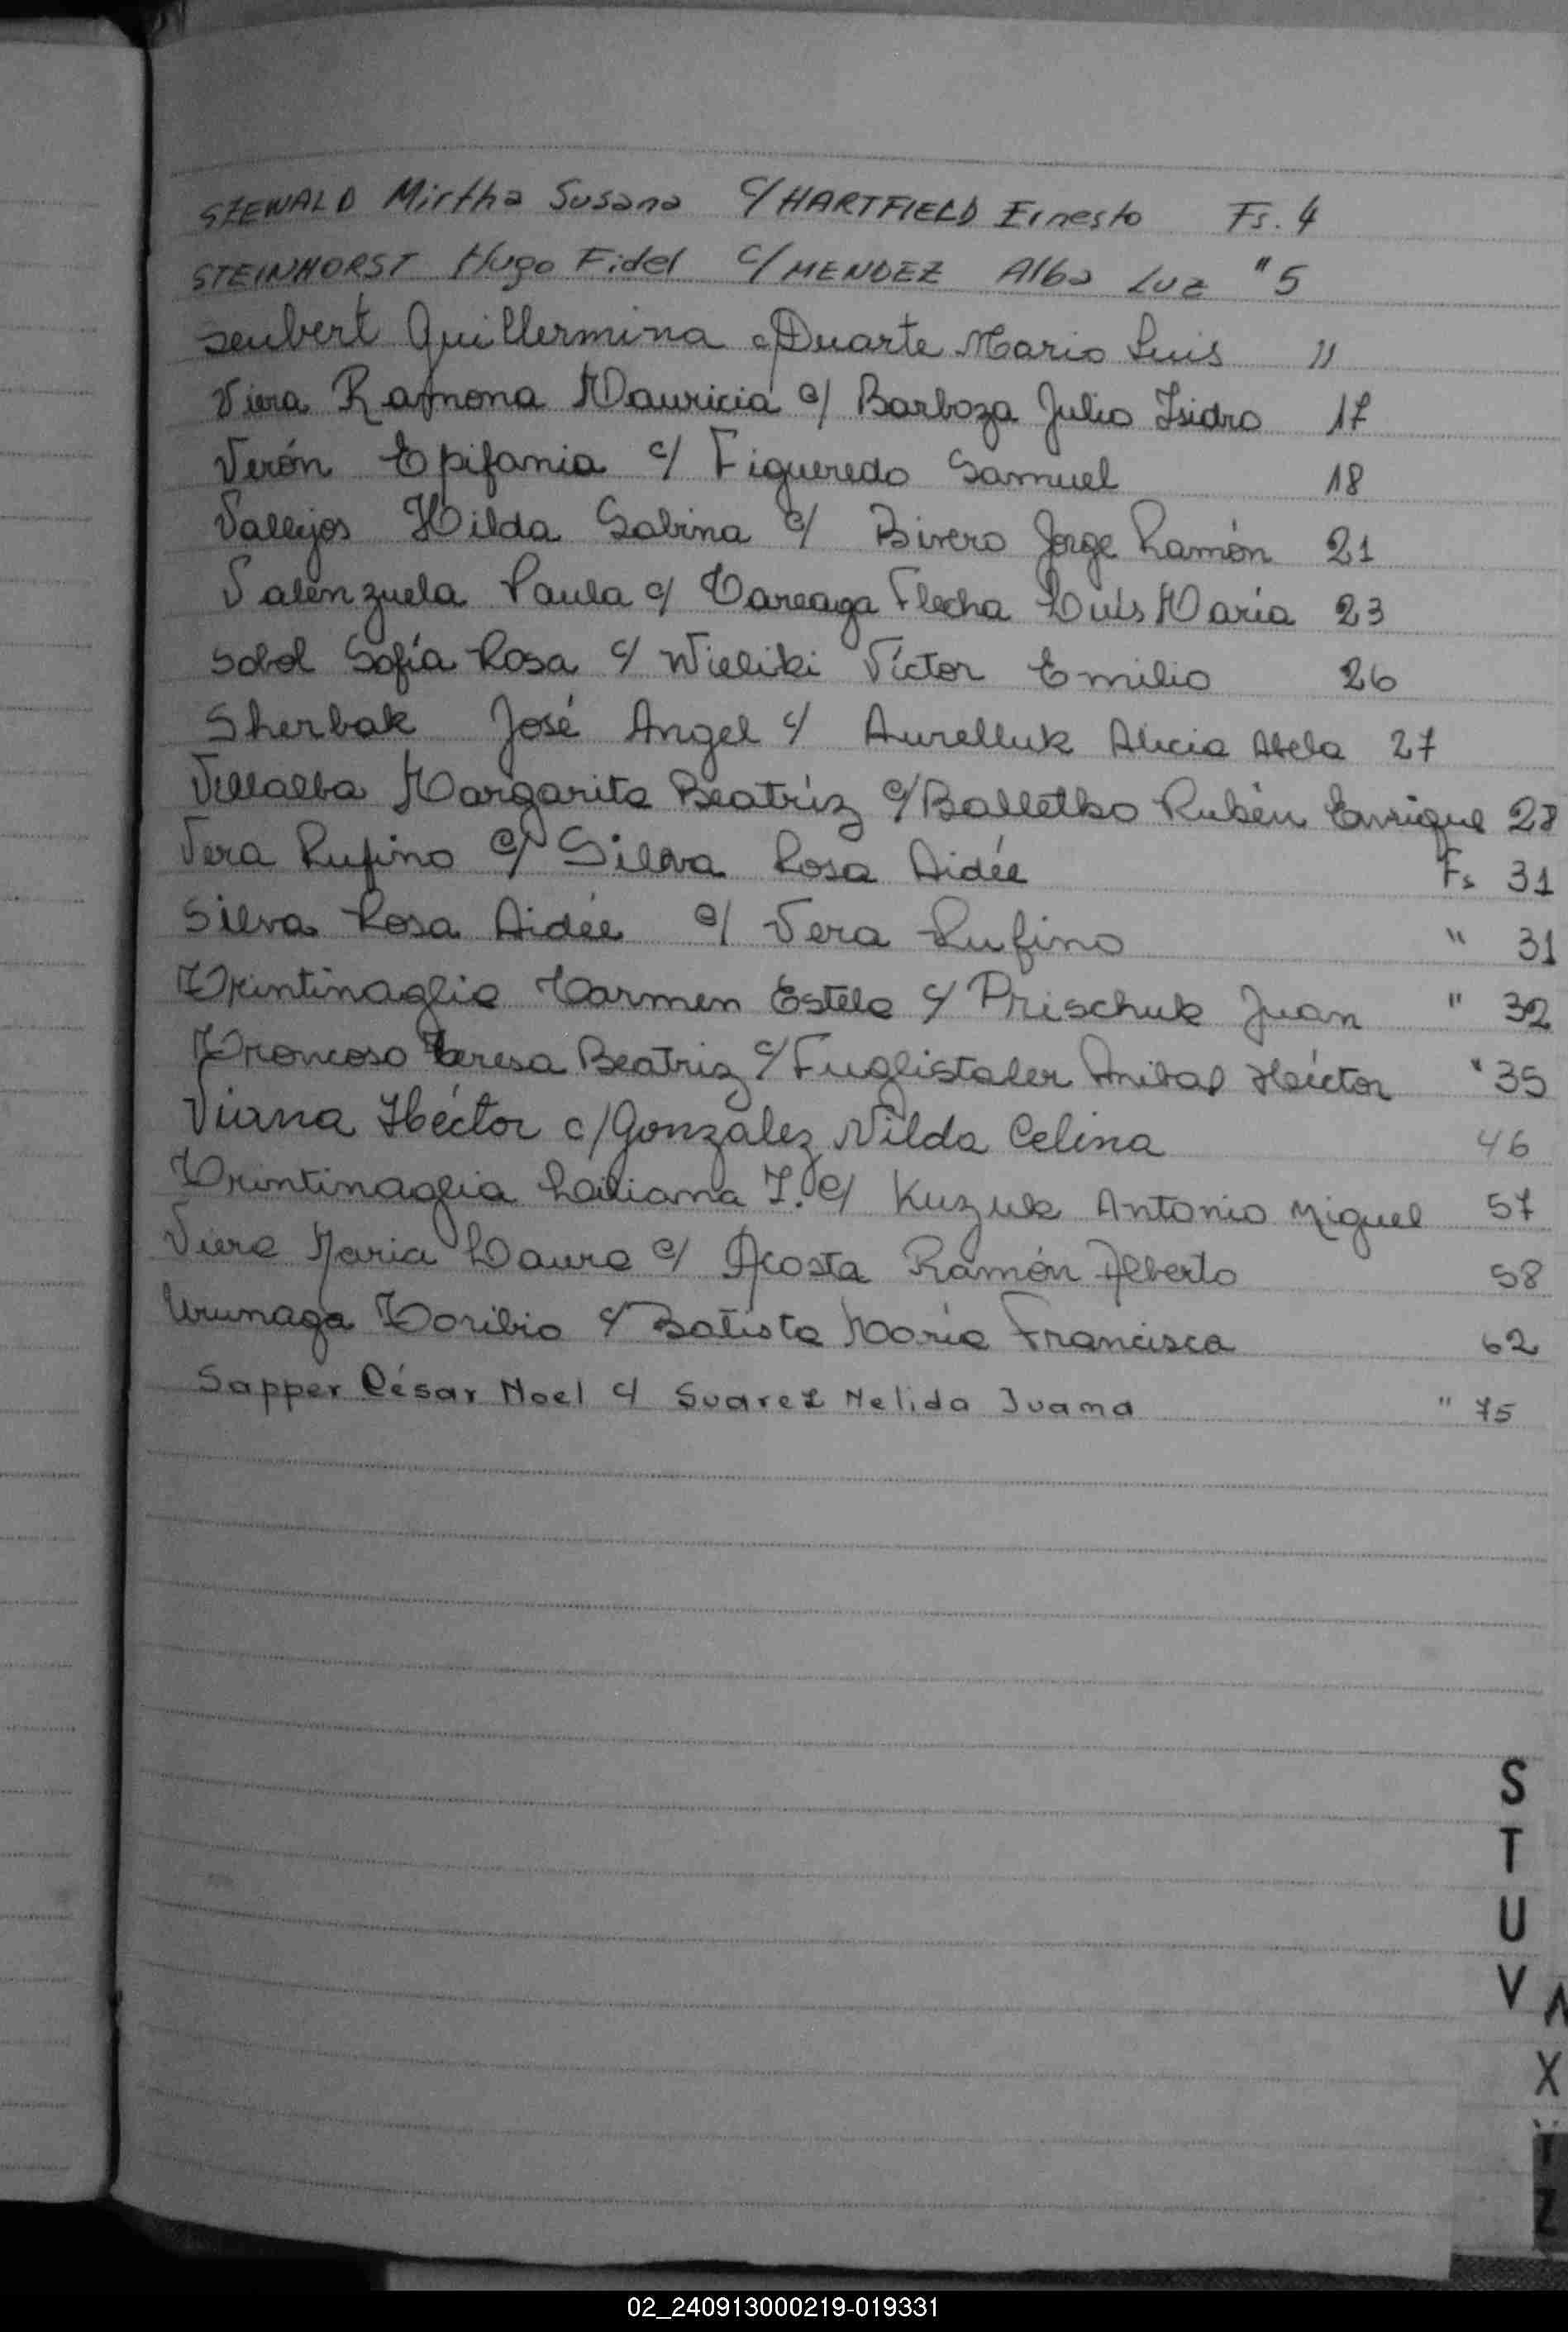 SZEWALD Mirtha Susana c/ HARTFIELD Ernesto Fs. 4
STEINHORST Hugo Fidel c/ MENDEZ Alba Luz " 5
Seubert Guillermina c/ Duarte Mario Luis 11
Viera Ramona Mauricia c/ Barboza Julio Isidro 17
Verón Epifania c/ Figueredo Samuel 18
Vallejos Hilda Sabina c/ Rivero Jorge Ramón 21
Valenzuela Paula c/ Careaga Flecha Luis María 23
Sobol Sofía Rosa c/ Wieliki Víctor Emilio 26
Sherbak José Angel c/ Aurelluk Alicia 27
Villalba Margarita Beatríz c/ Rubén Enrique 28
Vera Rufino c/ Silva Rosa Aidée Fs 31
Silva Rosa Aidée c/ Vera Rufino " 31
Trintinaglia Carmen Estela c/ Prischuk Juan " 32
Troncoso Teresa Beatriz c/ Fuglistaler Anibal Héctor " 35
Viana Héctor c/ González Nilda Celina 46
Trintinaglia Liliana I. c/ Kuzuk Antonio Miguel 57
Viera Maria Laura c/ Acosta Ramón Alberto 58
Urunaga Toribio c/ Batista María Francisca 62
Sapper César Noel c/ Suarez Nelida Juana " 75
S
T
U
V
X
Y
Z
02_240913000219-019331